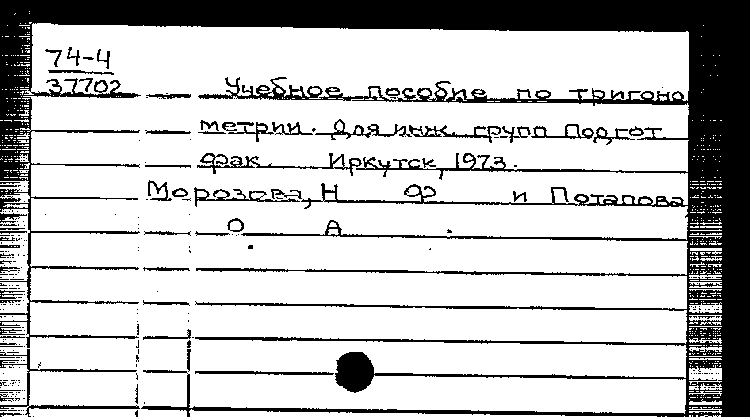 74-4
37702
Учебное пособие по тригоно
метрии. Для инж. групп Подгот.
фак. Иркутск, 1973.
Морозова, Н Ф и Потапова
О А .